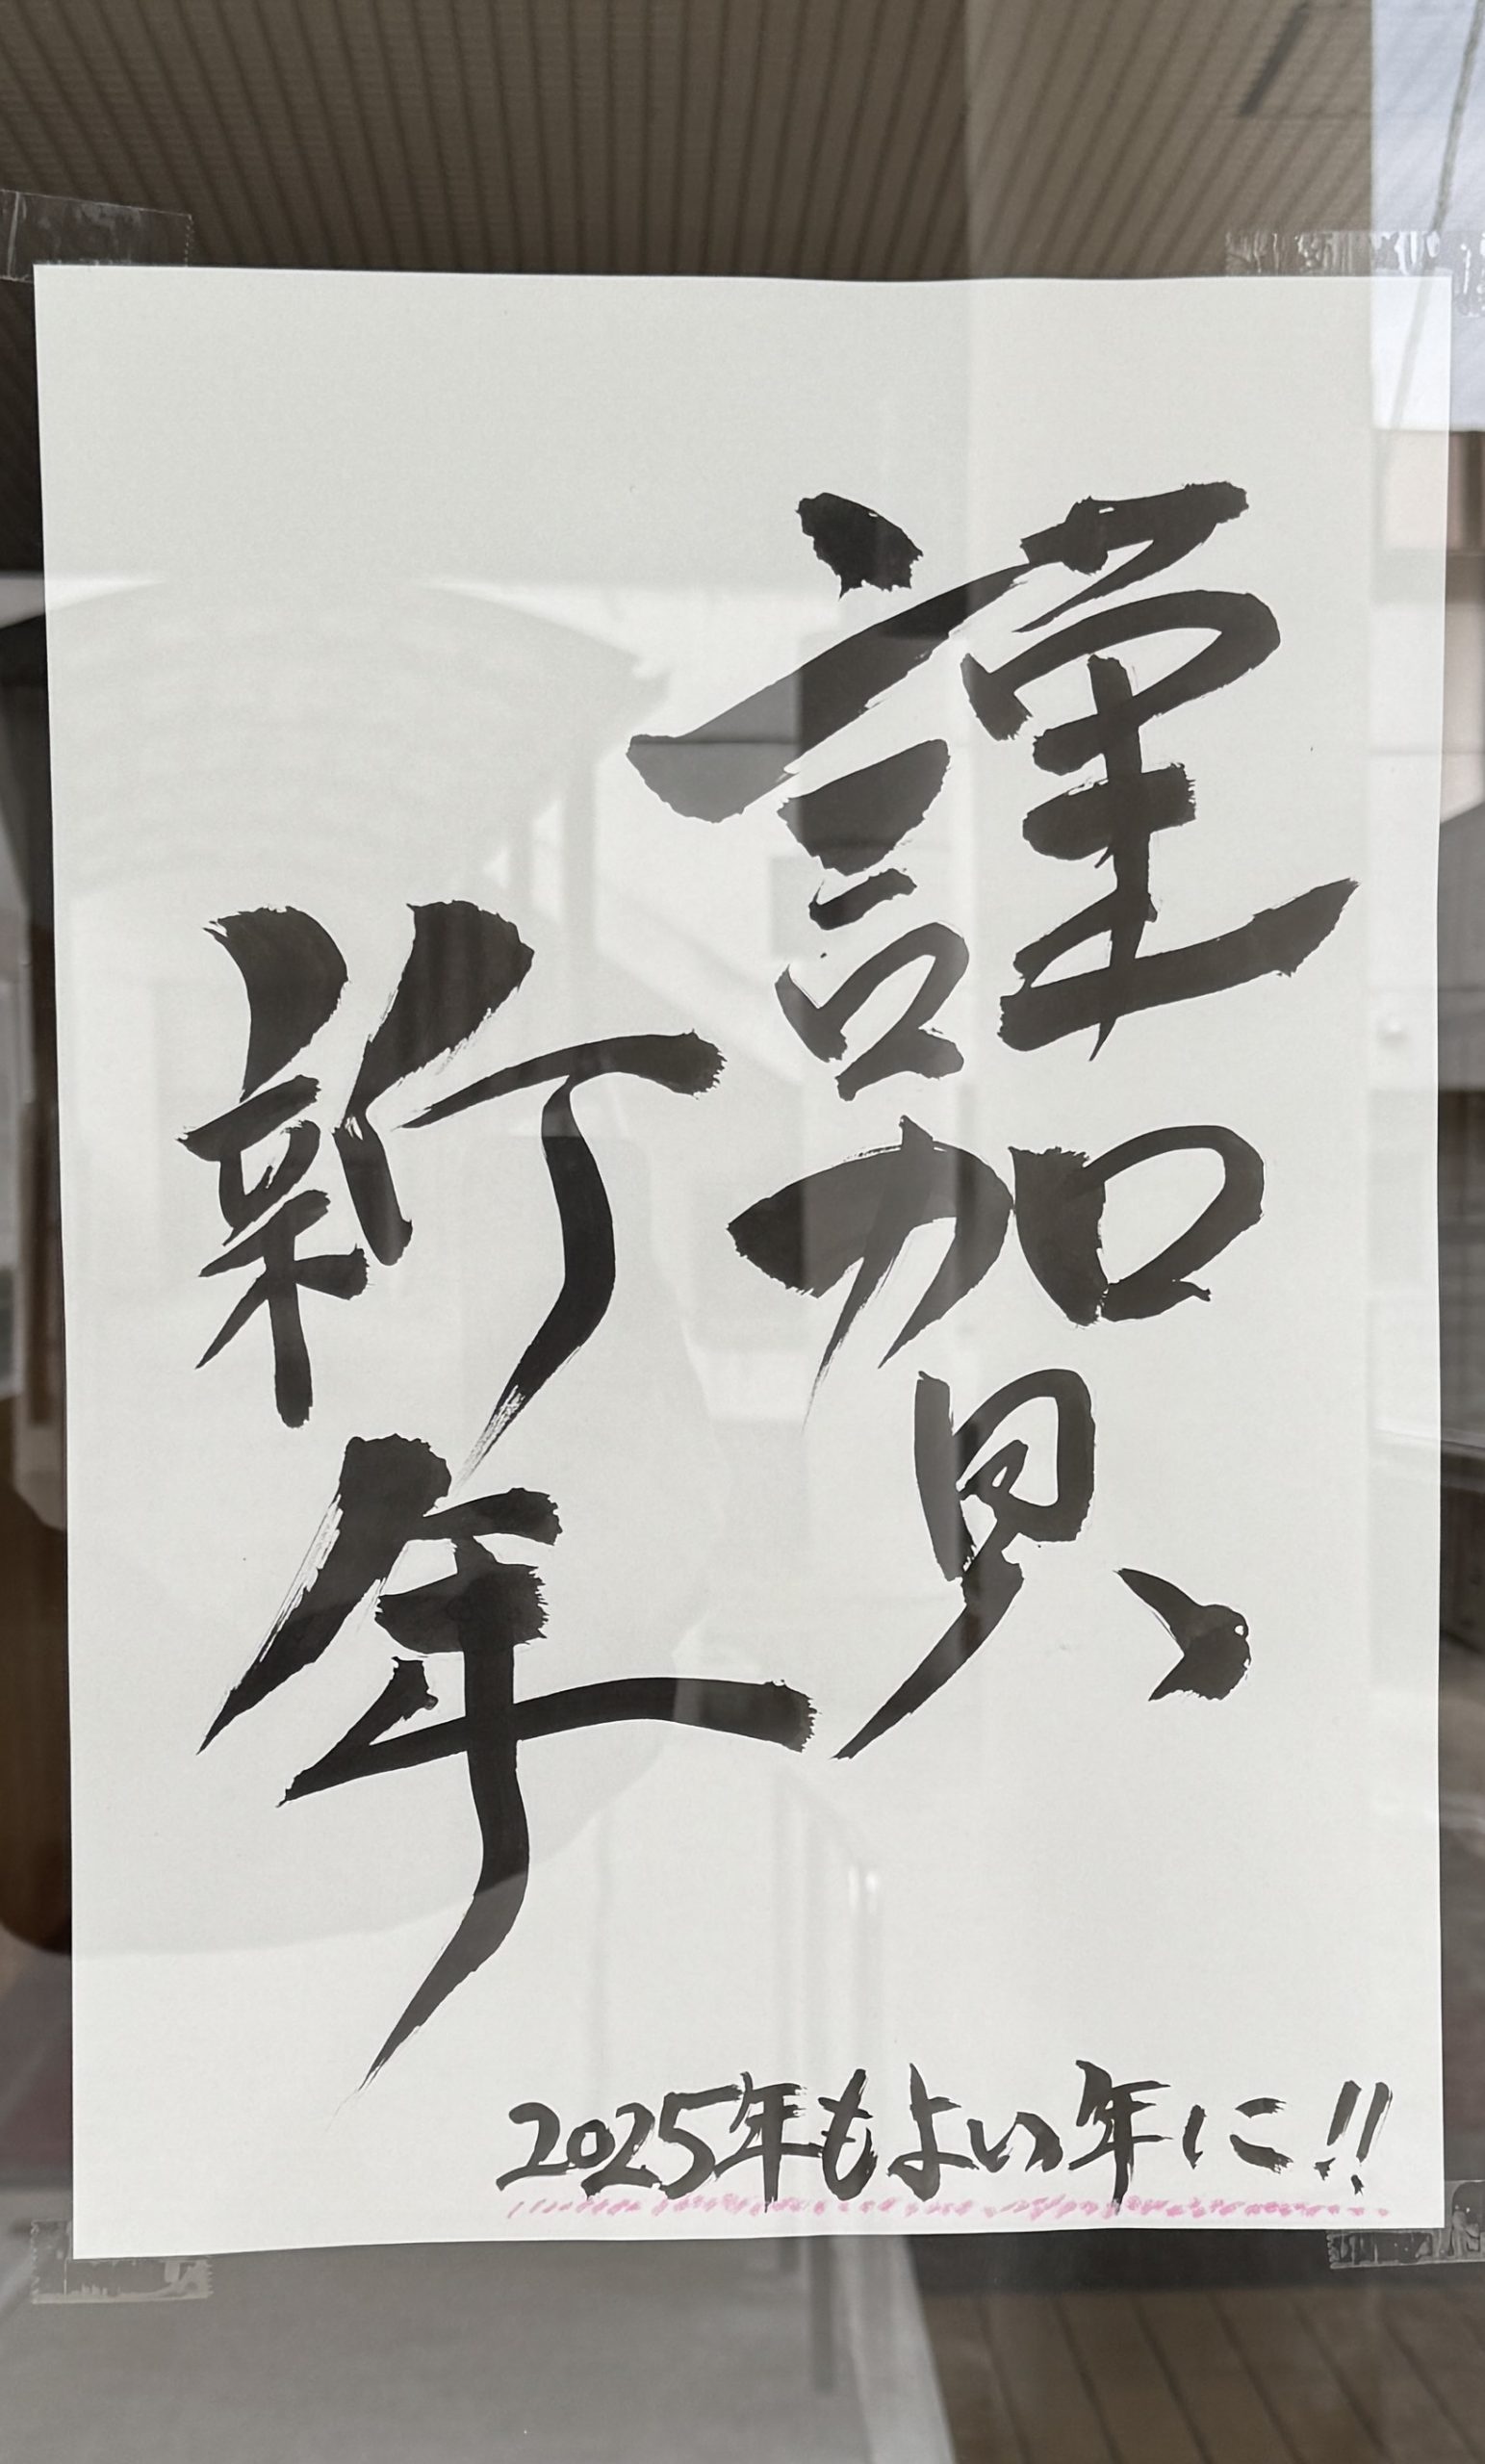 謹賀
新年
2025年もよい年に!!